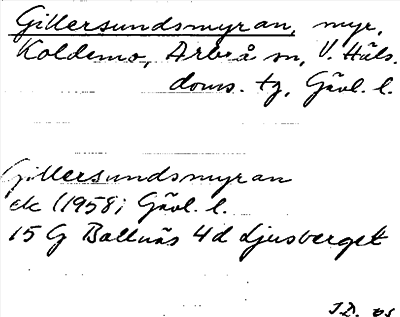 Gillersundsmyran, myr,
Koldemo, Arbrå sn, V. Häls.
doms. tg, Gävl. l.
Gillersundsmyran
ek (1958) Gävl. l.
15 G Bollnäs 4d Ljusberget